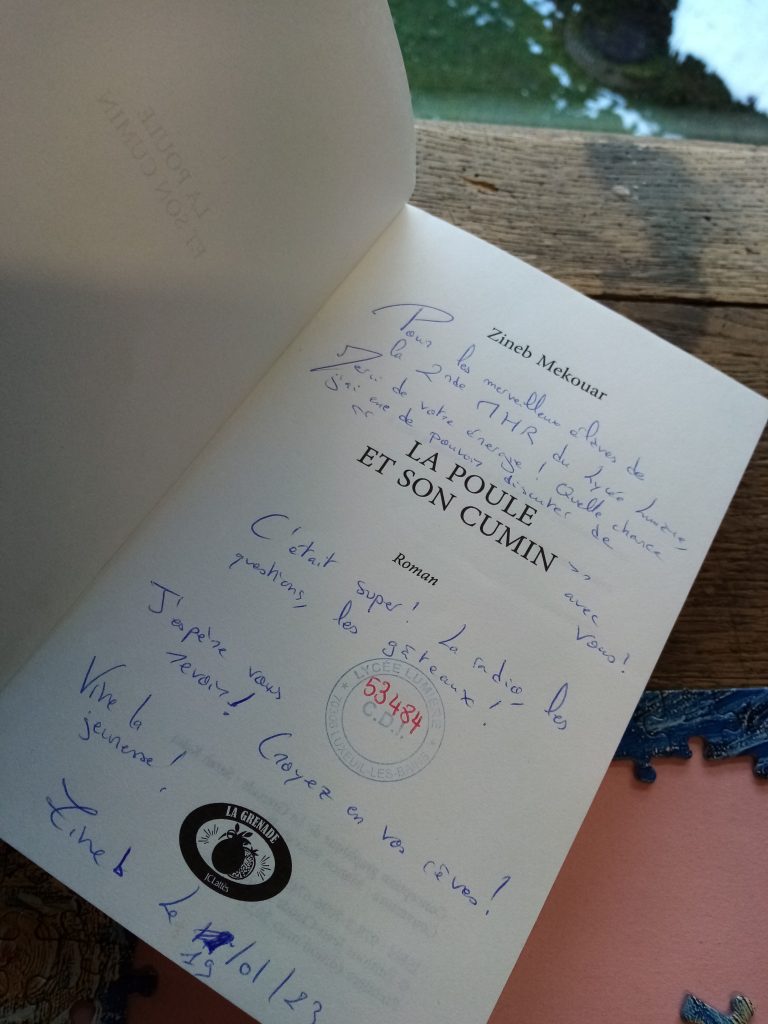 LA POULE
ET SON CUMIN
Zineb Mekouar
Pour les merveilleux élèves de
la 2nde MHR du Lycée Lumière,
Merci de votre énergie ! Quelle chance
j'ai eue de pouvoir discuter de
LA POULE
ET SON CUMIN
>> avec
vous !
Roman
C'était super ! La radio, les
questions, les gâteaux !
J'espère vous
revoir ! Croyez en vos rêves !
Vive la
jeunesse !
LYCÉE LUMIÈRE
C.D.I.
53484
70300 LUXEUIL-LES-BAINS
LA GRENADE
JCLattès
Zineb
Le /01/23
19